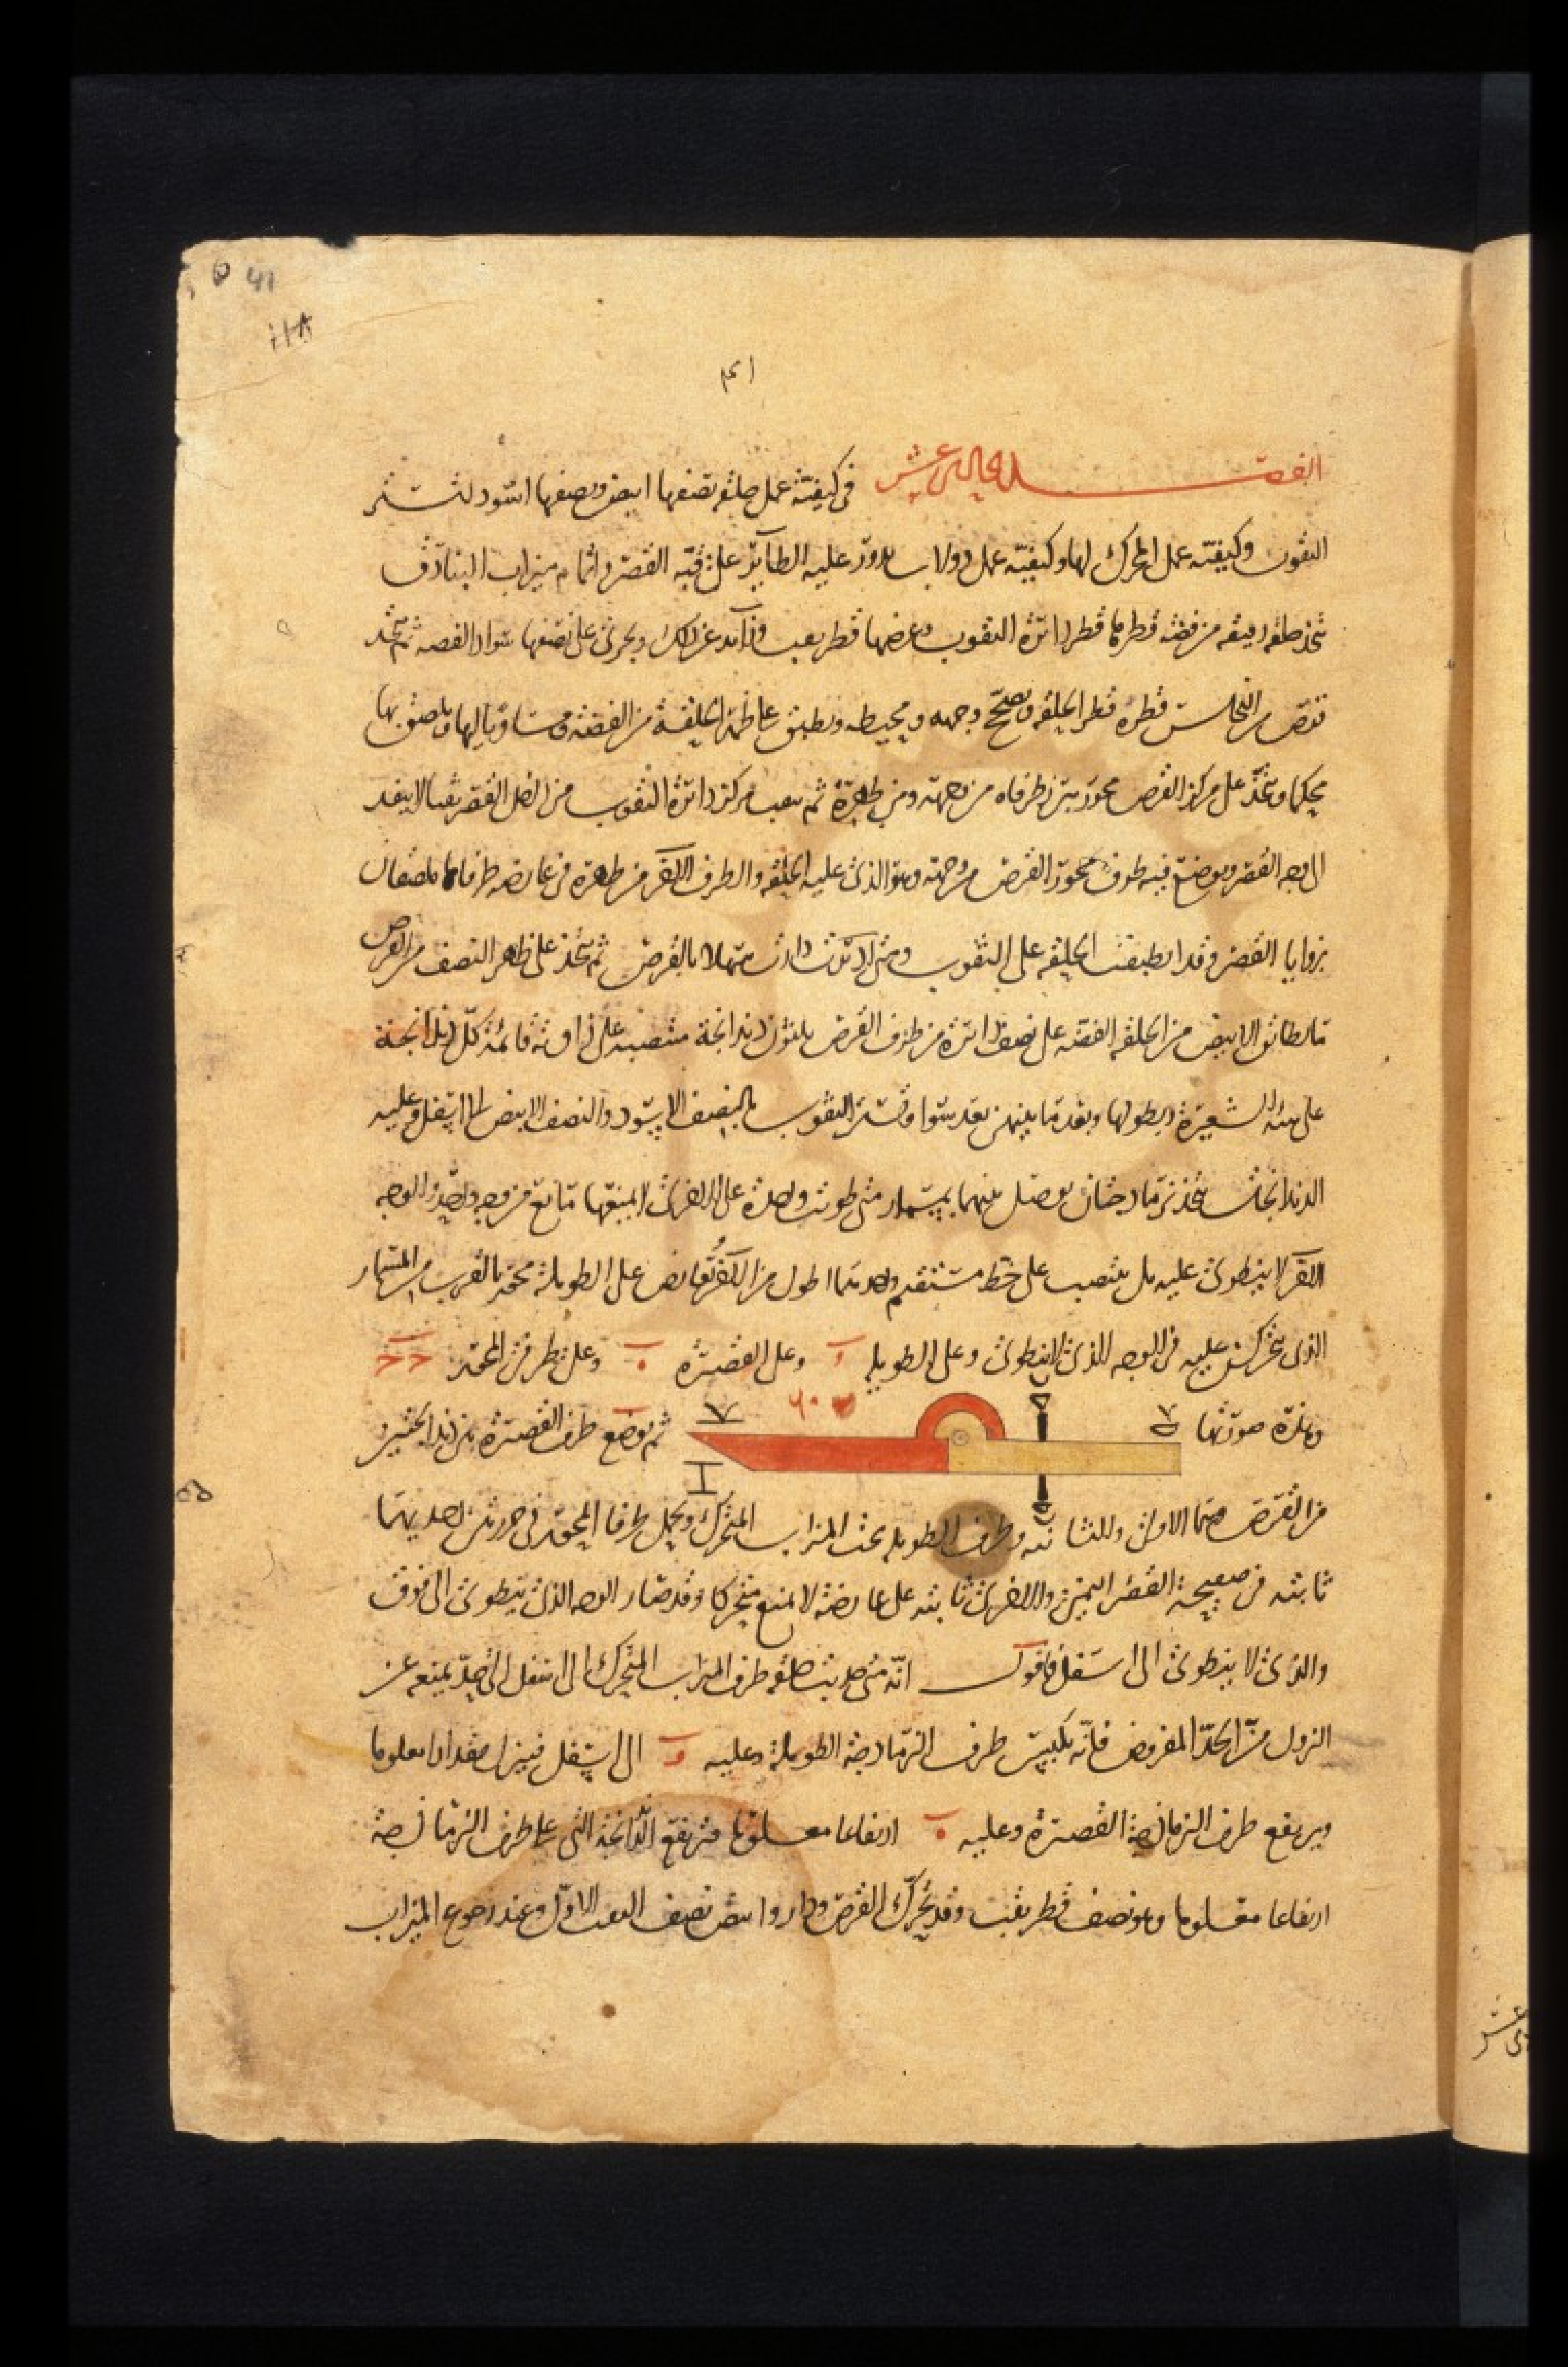 41
٤١
الفصل الحادي عشر في كيفية عمل حلقة نصفها ابيض ونصفها اسود لتستر
الثقوب وكيفية عمل المحرك لها وكيفية عمل دولاب يدور عليه الطائر على قبة القصر واتمام ميزاب البنادق
تتخذ حلقة رقيقة من فضة قطرها قطر دائرة الثقوب وعرضها قطر ثقب وزائد عن ذلك ويجرى على نصفها سواد الفضة ثم تتخذ
قرص من النحاس قطره قطر الحلقة ويصحح وجهه ومحيطه ويطبق على ظهر الحلقة من الفضة ومساويا لها ويلصق بها
محكما ويتخذ على مركز القرص محور يبرز طرفاه من وجهه ومن ظهره ثم يثقب مركز دائرة الثقوب من داخل القصر ثقبا لا ينفذ
الى وجه القصر ويوضع فيه طرف محور القرص من وجهه وهو الذي عليه الحلقة والطرف الآخر من ظهره في عارضة طرفاها ملصقان
بزوايا القصر وقد انطبقت الحلقة على الثقوب ومتى اديرت دارت سهلا بالقرص ثم تتخذ على ظهر النصف من القرص
مما يطابق الابيض من الحلقة الفضة على نصف دائرة من طرف القرص دندانجة منتصبة على زاوية قائمة كل دندانجة
على هيئة الشعيرة وبطولها وبعد ما بينهن بعد سوا وتستر الثقوب بالنصف الاسود والنصف الابيض الى اسفل وعليه
الدندانجات تتخذ نرمادجتان يوصل بينهما بمسمار متى طويت واحدة على الاخرى لم يمنعها مانع من وجه واحد والوجه
الآخر لا ينطوي عليه بل ينتصب على خط مستقيم واحديهما اطول من الآخر تعارض على الطويلة محور بالقرب من المسمار
الذي يتحركن عليه في الوجه الذي لا ينطوي وعلى الطويلة و وعلى القصيرة ب وعلى طرفي المحور
وهذه صورتها ثم يوضع طرف القصيرة بين دندانجتين
من القرص هما الاولى والثانية وطرف الطويلة تحت الميزاب المتحرك ويحمل طرفا المحور في خرزتين احديهما
ثابتة في صفيحة القصر اليمنى والاخرى ثابتة على عارضة لا تمنع متحركا وقد صار الوجه الذي ينطوي الى فوق
والذي لا ينطوي الى اسفل فاقول انه متى جذبت حلقة طرف الميزاب المتحرك الى اسفل الى حد يمنعه عن
النزول من الحد المفروض فانه يكبس طرف النرمادجة الطويلة وعليه و الى اسفل فينزل مقدارا معلوما
ويرتفع طرف النرمادجة القصيرة وعليه ب ارتفاعا معلوما فترتفع الدندانجة التي على طرف النرمادجة
ارتفاعا معلوما وهو نصف قطر ثقب وقد تحرك القرص ودار وابيض نصف الثقب الاول وعند رجوع الميزاب